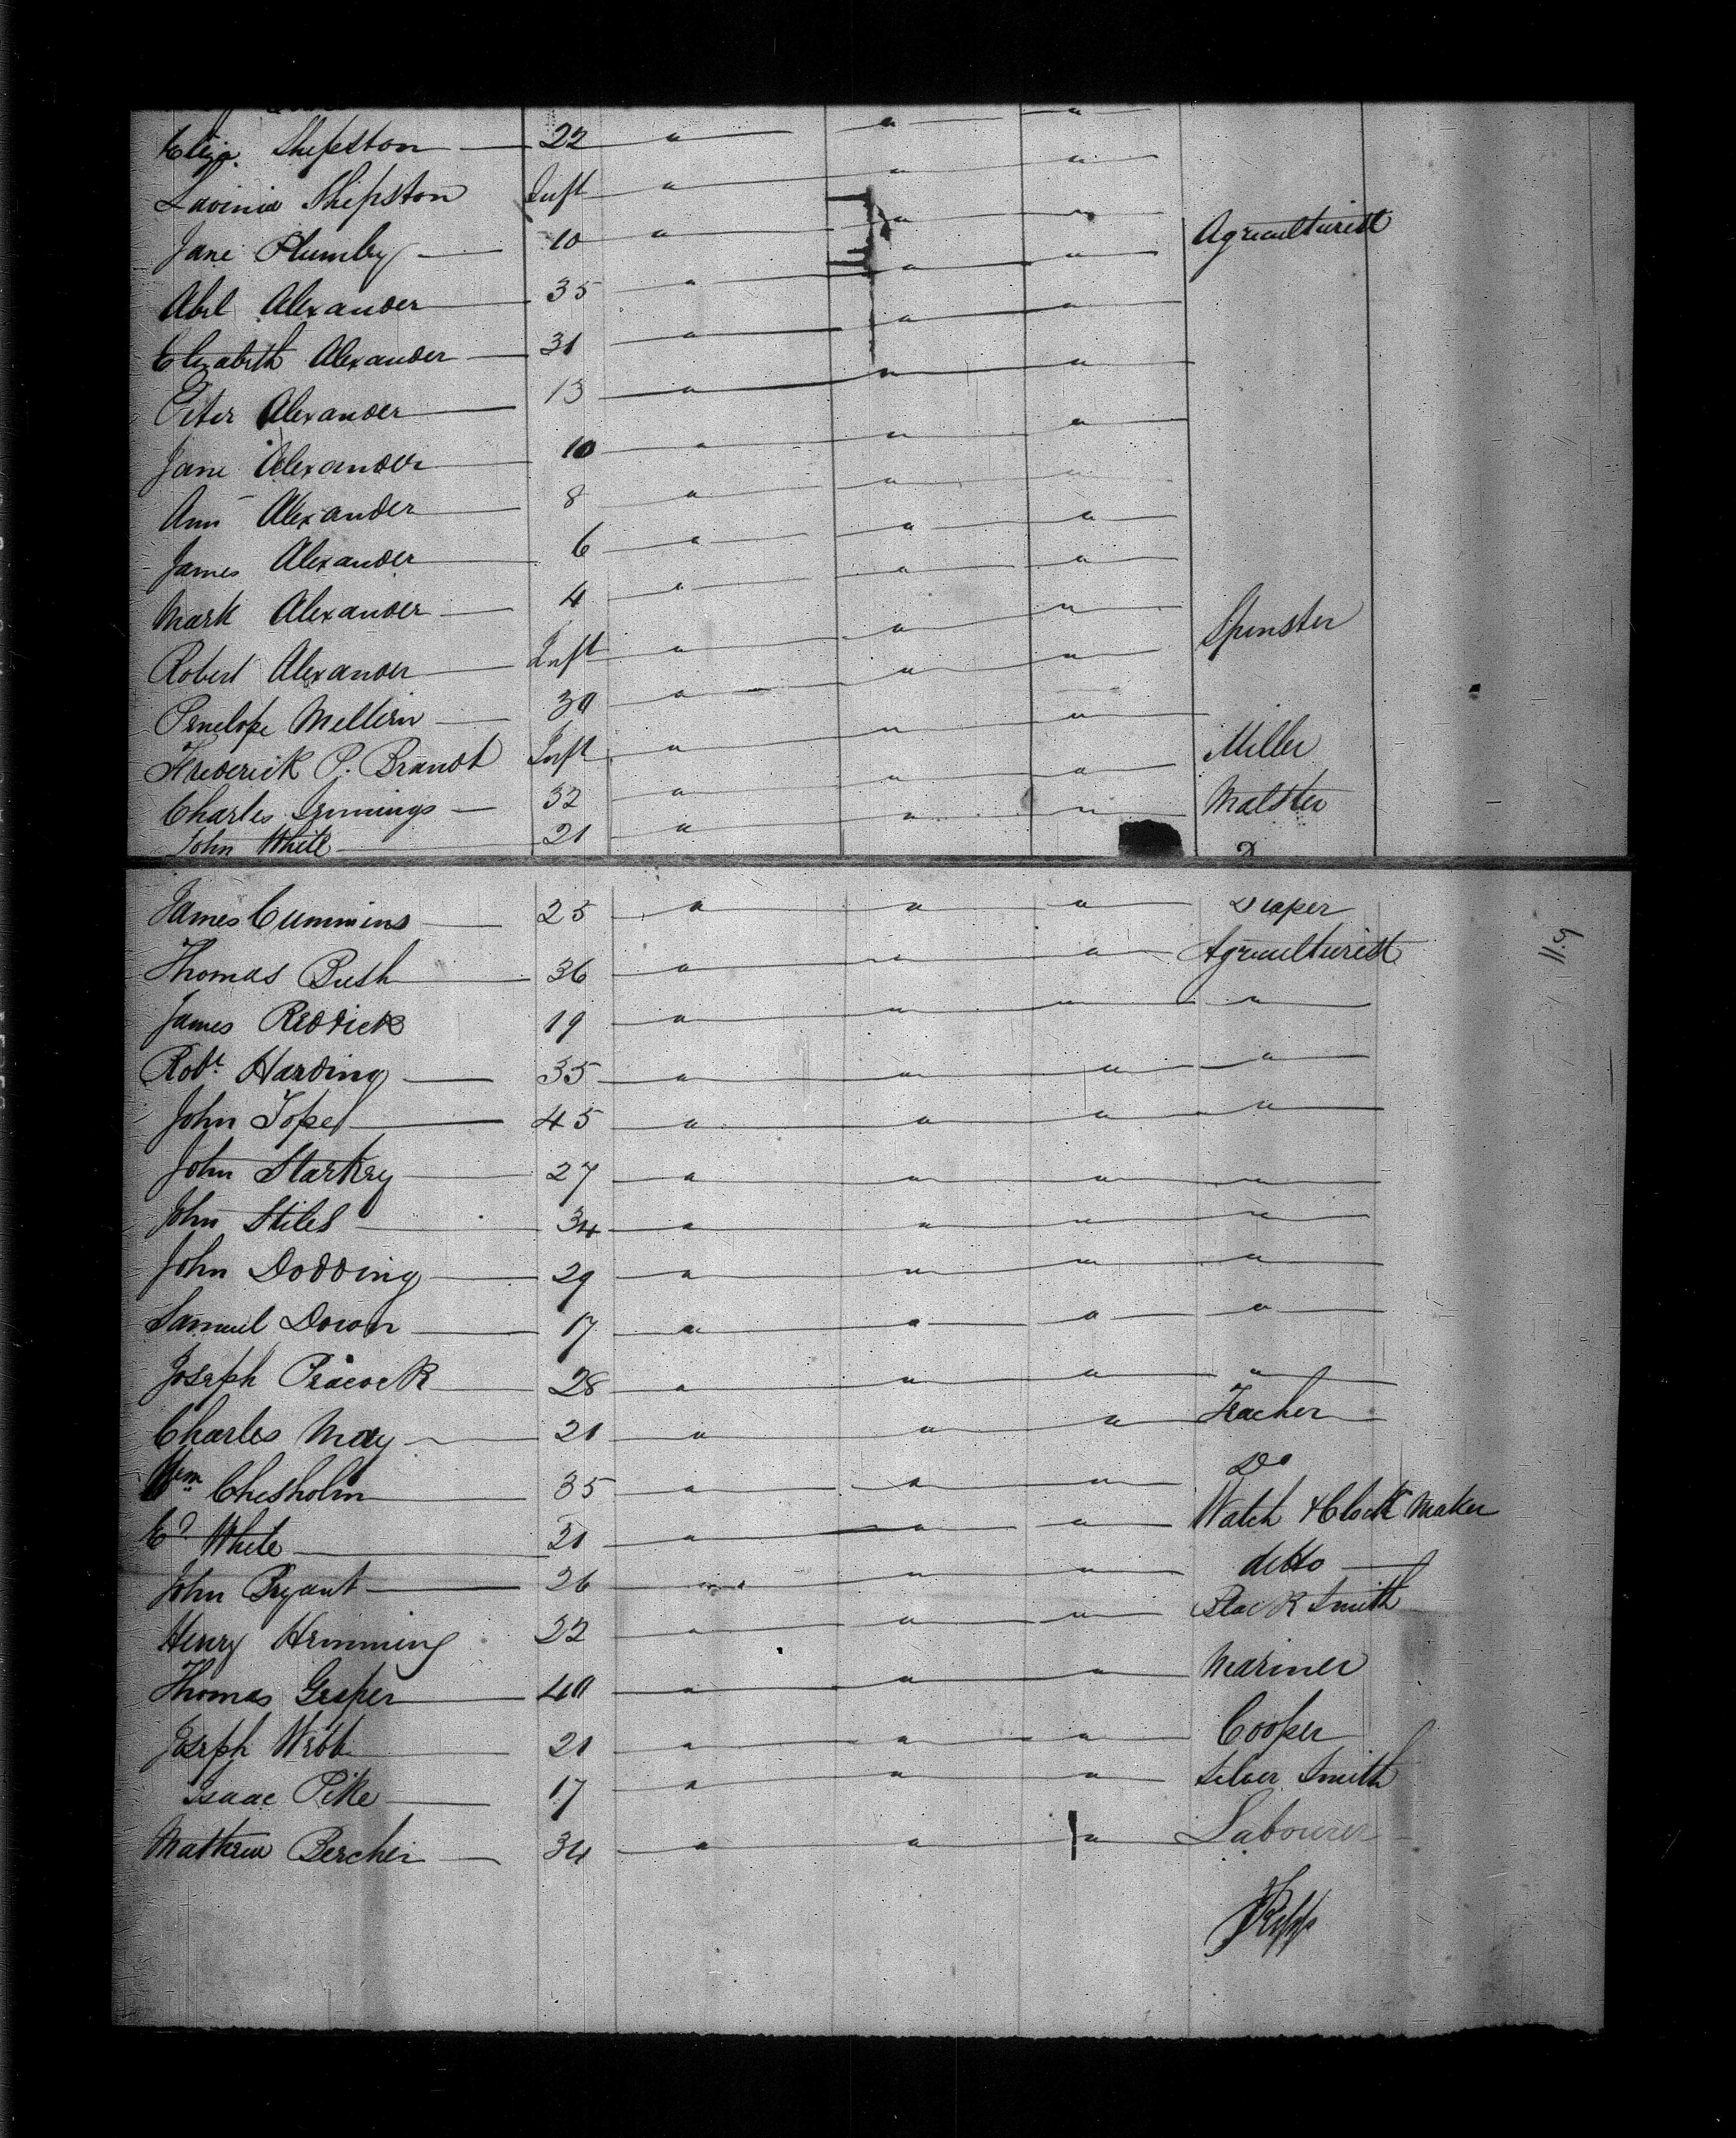 Eliza. Shepston 22 " " "
Lavinia Shepston Inft " " "
Jane Plumby 10 " " " Agriculturist
Abel Alexander 35 " " "
Elizabeth Alexander 31 " " "
Peter Alexander 13 " " "
Jane Alexander 10 " " "
Ann Alexander 8 " " "
James Alexander 6 " " "
Mark Alexander 4 " " "
Robert Alexander Inft " " " Spinster
Penelope Mellern 30 " " "
Frederick P. Brandt Inft " " " Miller
Charles Jennings 32 " " " Malster
John White 21 " " "
James Cummins 25 " " " Draper
Thomas Bush 36 " " " Agriculturist
James Reddick 19 " " " "
Robt. Harding 35 " " " "
John Tope 45 " " " "
John Starkey 27 " " " "
John Stiles 34 " " " "
John Dodding 29 " " " "
Samuel Down 17 " " " "
Joseph Peacock 28 " " " "
Charles May 21 " " " Teacher
Wm Chesholm 35 " " " Do
Ed. White 21 " " " Watch & Clock Maker
John Bryant 26 " " " ditto
Henry Hemming 22 " " " Black Smith
Thomas Gesper 40 " " " Mariner
Joseph Webb 21 " " " Cooper
Isaac Pike 17 " " " Silver Smith
Mathew Bercher 34 " " " Labourer